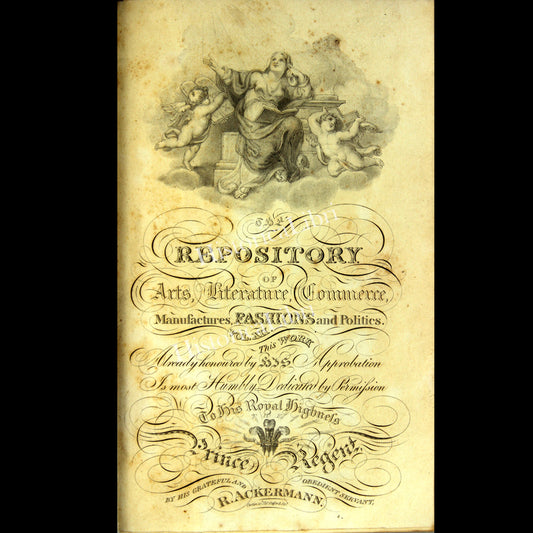 THE
REPOSITORY
OF
Arts, Literature, Commerce,
Manufactures, FASHIONS and Politics.
This WORK
Already honoured by HIS Approbation
Is most Humbly Dedicated by Permission
To His Royal Highness
Prince Regent,
BY HIS GRATEFUL AND OBEDIENT SERVANT,
R. ACKERMANN.